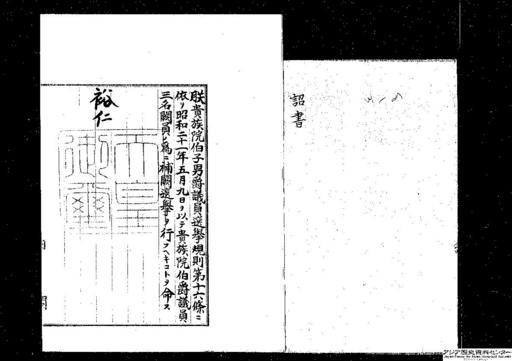 詔書
朕貴族院伯子男爵議員選擧規則第十六條ニ
依リ昭和二十一年五月九日ヲ以テ貴族院伯爵議員
三名闕員ノ爲ニ補闕選擧ヲ行フヘキコトヲ命ス
裕仁
天皇
御璽
アジア歴史資料センター